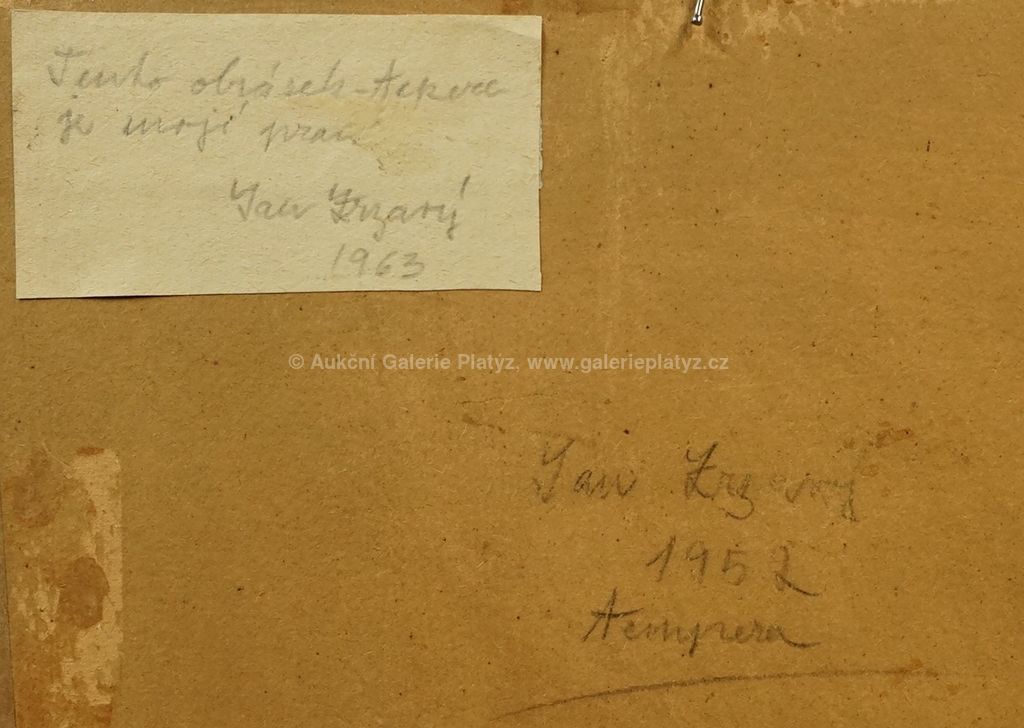 Tento obrázek - tempera
je mojí prací
Jan Zrzavý
1963
© Aukční Galerie Platýz, www.galerieplatyz.cz
Jan Zrzavý
1952
tempera